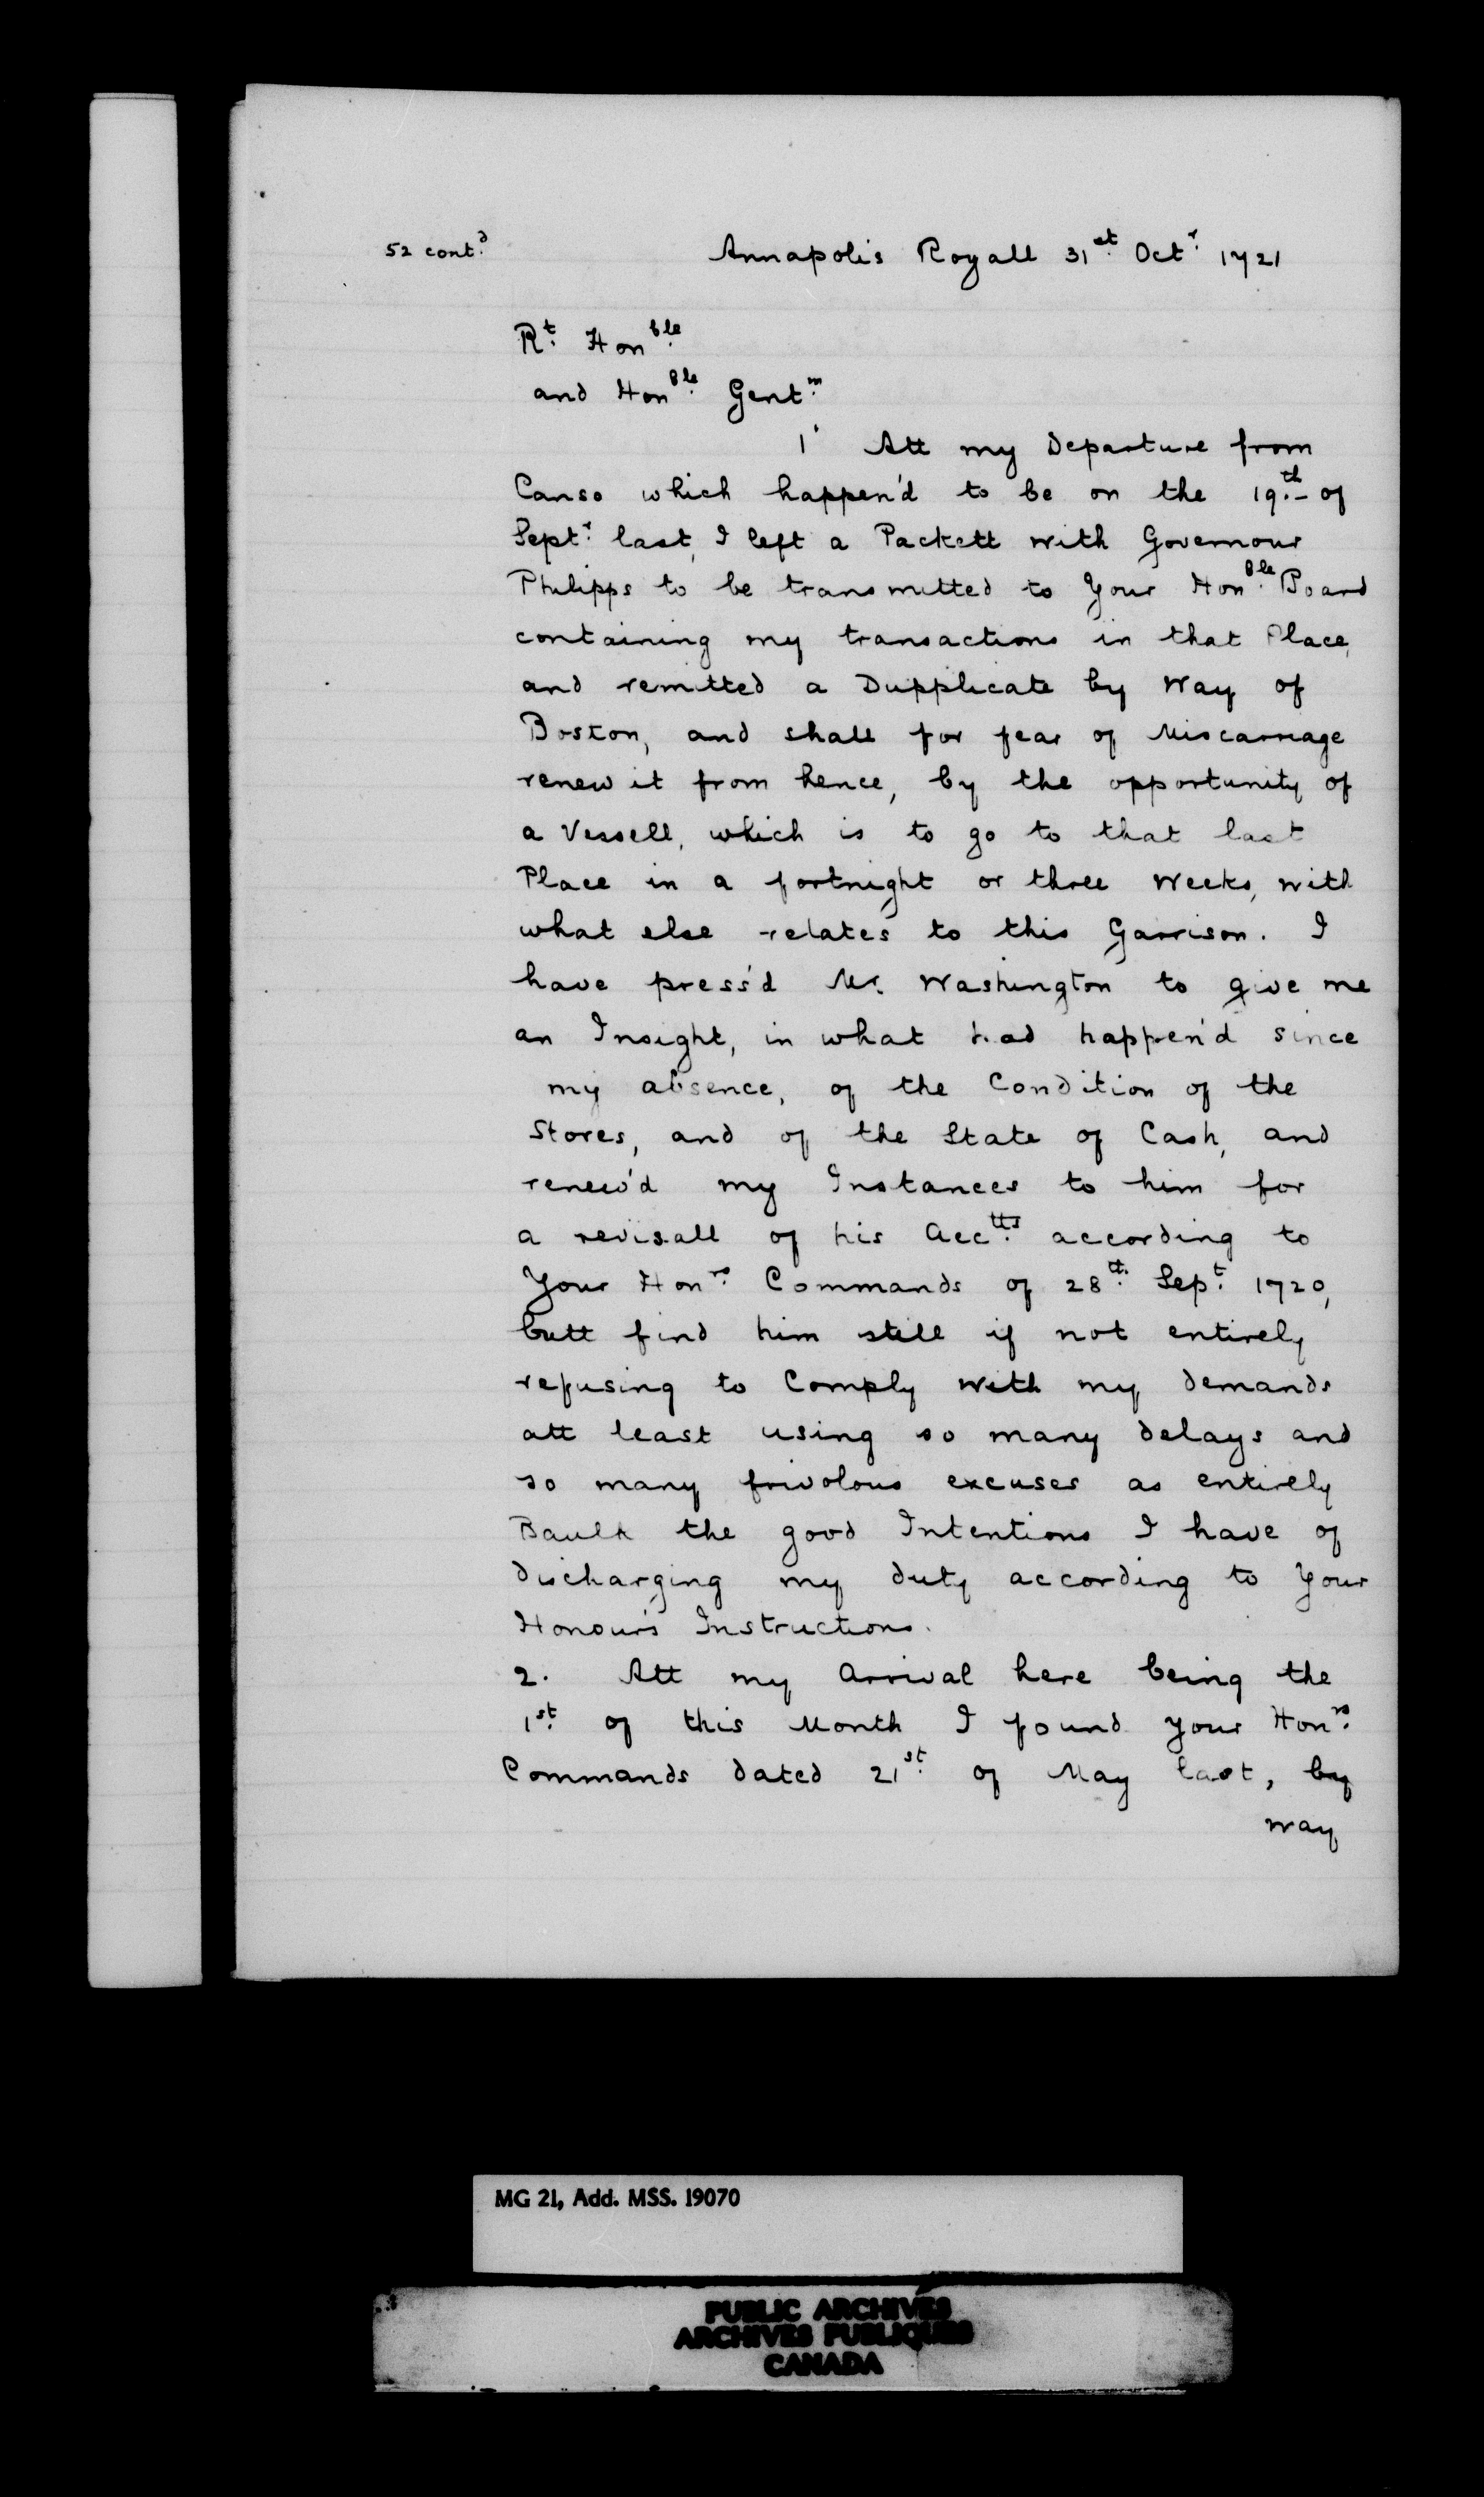 52 cont.d
Annapolis Royall 31st Octr 1721
Rt. Honble.
and HonBle. Gentm.
1. Att my Departure from
Canso which happen'd to be on the 19.th of
Septr. last, I left a Packett with Governour
Philipps to be transmitted to Your HonBle. Board
containing my transactions in that Place,
and remitted a Dupplicate by Way of
Boston, and shall for fear of Miscarriage
renew it from hence, by the opportunity of
a Vessell, which is to go to that last
Place in a fortnight or three Weeks, with
what else relates to this Garrison. I
have press'd Mr. Washington to give me
an Insight, in what had happen'd since
my absence, of the Condition of the
Stores, and of the State of Cash, and
renew'd my Instances to him for
a revisall of his Acctts. according to
Your Honrs. Commands of 28th. Sept. 1720,
butt find him still if not entirely
refusing to Comply with my demands
att least using so many delays and
so many frivolous excuses as entirely
Baulk the good Intentions I have of
discharging my duty according to Your
Honour's Instructions.
2. Att my Arrival here being the
1st. of this Month I found your Honrs.
Commands dated 21st. of May last, by
way
MG 21, Add. MSS. 19070
PUBLIC ARCHIVES
ARCHIVES PUBLIQUES
CANADA